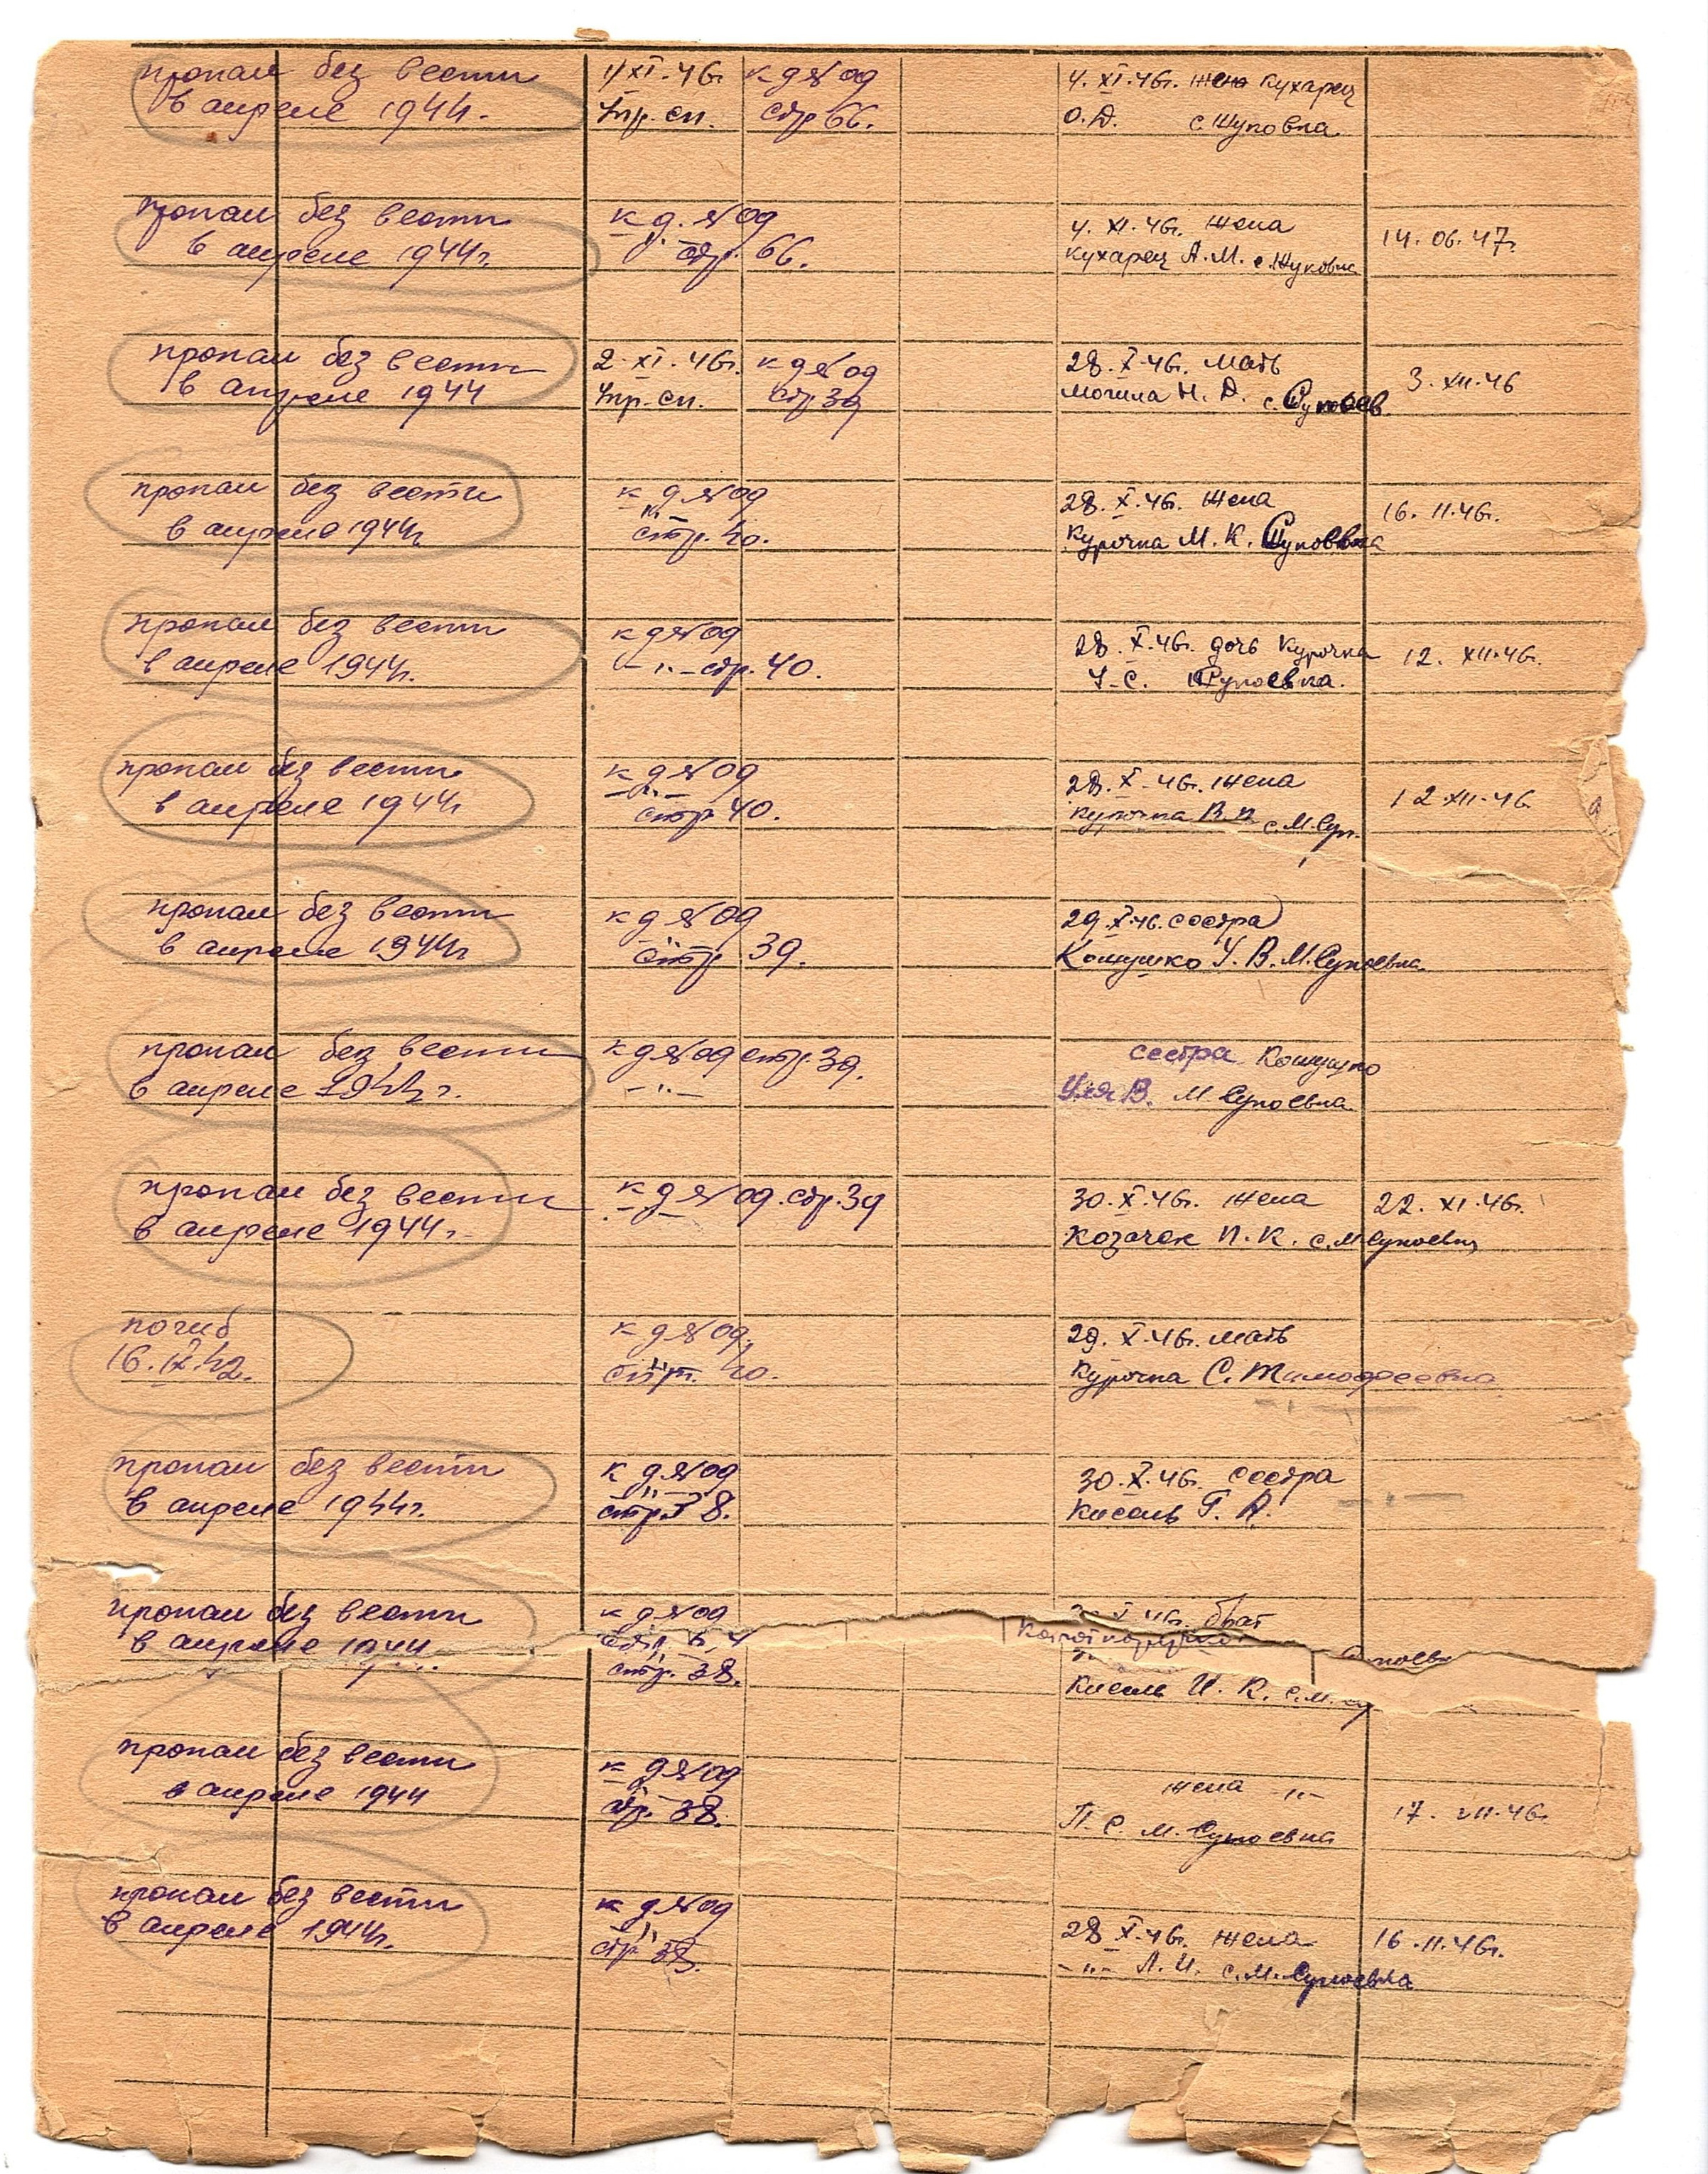 пропал без вести
в апреле 1944.
4/XI.46г. к д № 09
Упр. сп. стр 66.
4. XI.46г. жена Кухарец
О.Д. с.
пропал без вести
в апреле 1944г.
к д. № 09
стр. 66.
4. XI.46г. жена
Кухарец А.М.
14. 06. 47г.
пропал без вести
в апреле 1944
2. XI.46г. к д № 09
Упр. сп. стр 39
28. X.46г. мать
Могила Н. Д. с.
3. XII.46
пропал без вести
в апреле 1944г.
к д № 09
-"- стр. 40.
28. X.46г. жена
Курочка М. К.
16. 11.46г.
пропал без вести
в апреле 1944г.
к д № 09
-"- стр. 40.
28. X.46г. дочь Курочка
У. С.
12. XII.46г.
пропал без вести
в апреле 1944г
к д № 09
-"-
стр 40.
28. X.46г. жена
Курочка В. П. с. М. Суп.
12.XII.46
пропал без вести
в апреле 1944г
к д № 09
стр 39.
29. X.46. сестра
Кошушко У. В. М. Супоевка.
пропал без вести
в апреле 1944г.
к д № 09 стр. 39.
-"-
сестра Кошушко
Уля В. М Супоевка
пропал без вести
в апреле 1944г.
к д № 09. стр. 39
30. X.46г. жена
Козачек П. К. с. М. Супоевка
22. XI.46г.
погиб
16. IX.42.
к д № 09.
стр. 40.
29. X.46г. мать
Курочка С. Тимофеевна
-"-
пропал без вести
в апреле 1944г.
к д № 09
-"-
стр. 38.
30. X.46г. сестра
Кисель Г. А.
-"-
пропал без вести
в апреле 1944
к д № 09
стр. 38.
X 46г. брат
Кисель И. К. с. М.
пропал без вести
в апреле 1944
к д № 09
стр. 38.
жена -"-
П С. М. Супоевка
17. VII.46г.
пропал без вести
в апреле 1944г.
к д № 09
стр. 38.
28 X.46г. жена
-"- А. И. с. М. Супоевка
16.11.46г.